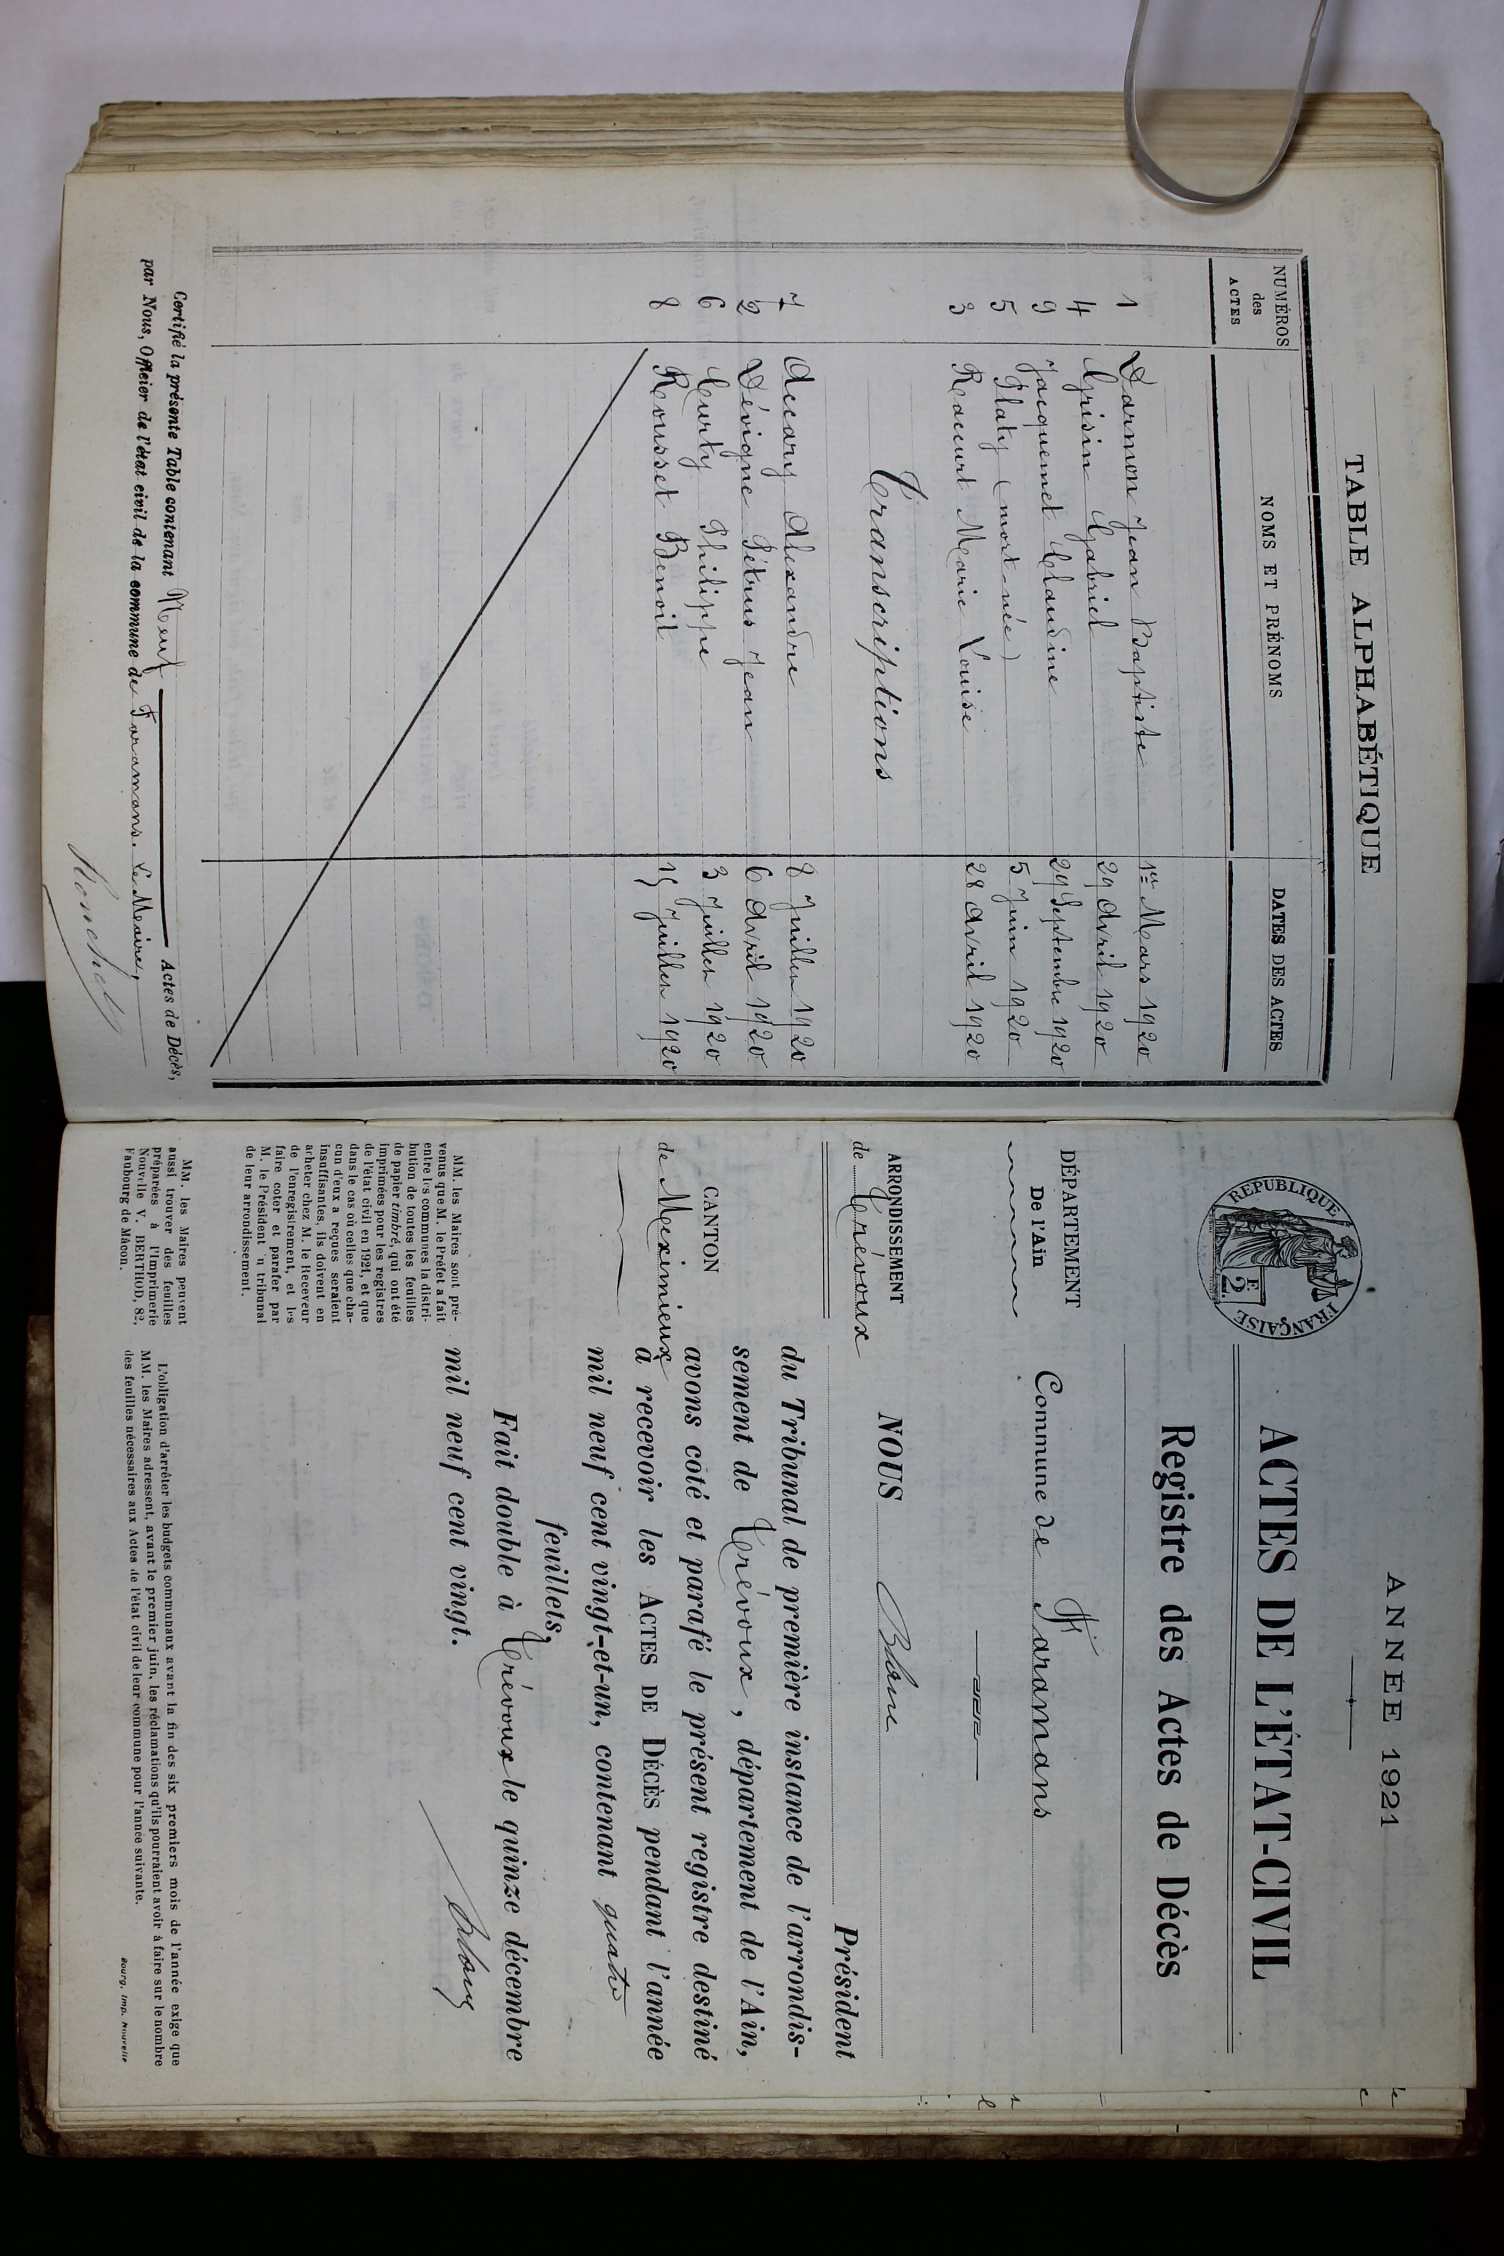 TABLE ALPHABÉTIQUE
NUMÉROS des ACTES
NOMS ET PRÉNOMS
DATES DES ACTES
1 Darmon Jean Baptiste 1er Mars 1920
4 Grisin Gabriel 29 Avril 1920
9 Jacquemet Claudine 29 Septembre 1920
5 Platz (mort-née) 5 Juin 1920
3 Raccurt Marie Louise 28 Avril 1920
Transcriptions
7 Accary Alexandre 8 Juillet 1920
2 Dévigne Pétrus Jean 6 Avril 1920
6 Curty Philippe 3 Juillet 1920
8 Rousset Benoit 15 Juillet 1920
Certifié la présente Table contenant Neuf Actes de Décès,
par Nous, Officier de l'état civil de la commune de Faramans. Le Maire,
ANNÉE 1921
RÉPUBLIQUE FRANÇAISE
2 F.
ACTES DE L'ÉTAT-CIVIL
Registre des Actes de Décès
DÉPARTEMENT
De l'Ain
Commune de Faramans
ARRONDISSEMENT
de Trévoux
CANTON
de Meximieux
MM. les Maires sont pré-
venus que M. le Préfet a fait
entre les communes la distri-
bution de toutes les feuilles
de papier timbré, qui ont été
imprimées pour les registres
de l'état civil en 1921, et que
dans le cas où celles que cha-
cun d'eux a reçues seraient
insuffisantes, ils doivent en
acheter chez M. le Receveur
de l'enregistrement, et les
faire coter et parafer par
M. le Président u tribunal
de leur arrondissement.
MM. les Maires peuvent
aussi trouver des feuilles
préparées à l'Imprimerie
Nouvelle V. BERTHOD, 82,
Faubourg de Mâcon.
NOUS Blanc
Président
du Tribunal de première instance de l'arrondis-
sement de Trévoux, département de l'Ain,
avons coté et parafé le présent registre destiné
à recevoir les ACTES DE DÉCÈS pendant l'année
mil neuf cent vingt-et-un, contenant quatre
feuillets,
Fait double à Trévoux le quinze décembre
mil neuf cent vingt.
L'obligation d'arrêter les budgets communaux avant la fin des six premiers mois de l'année exige que
MM. les Maires adressent, avant le premier juin, les réclamations qu'ils pourraient avoir à faire sur le nombre
des feuilles nécessaires aux Actes de l'état civil de leur commune pour l'année suivante.
Bourg, Imp. Nouvelle